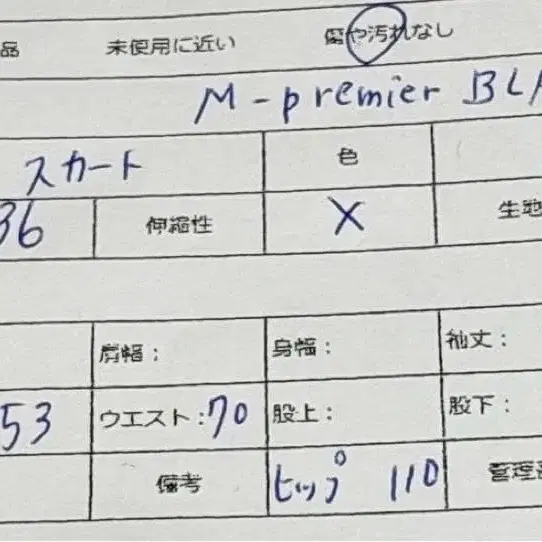 品 未使用に近い 傷や汚れなし
M-premier BLA
スカート 色
36 伸縮性 X 生地
肩幅: 身幅: 袖丈:
53 ウエスト:70 股上: 股下:
備考 ヒップ 110 管理番